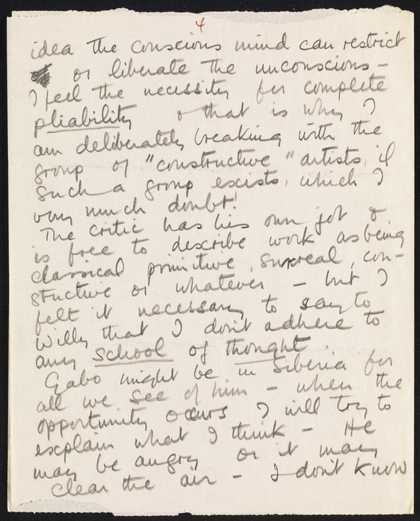 4
idea the conscious mind can restrict
or liberate the unconscious -
I feel the necessity for complete
pliability & that is why I
am deliberately breaking with the
group of "constructive" artists, if
such a group exists, which I
very much doubt!
The critic has his own job &
is free to describe work as being
classical primitive, surreal, con-
structive or whatever - but I
felt it necessary to say to
Willy that I don't adhere to
any school of thought.
Gabo might be in Siberia for
all we see of him - when the
opportunity occurs I will try to
explain what I think - He
may be angry or it may
clear the air - I don't know